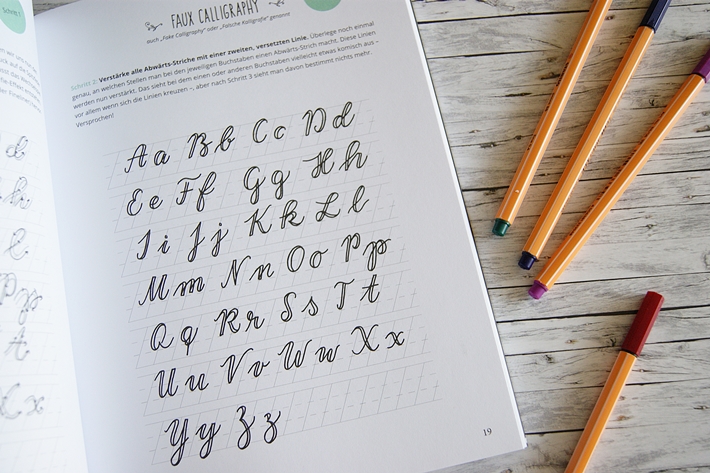 Schritt 1
FAUX CALLIGRAPHY
auch „Fake Calligraphy“ oder „Falsche Kalligrafie“ genannt
Schritt 2: Verstärke alle Abwärts-Striche mit einer zweiten, versetzten Linie. Überlege noch einmal
genau, an welchen Stellen man bei den jeweiligen Buchstaben einen Abwärts-Strich macht. Diese Linien
werden nun verstärkt. Das sieht bei dem einen oder anderen Buchstaben vielleicht etwas komisch aus –
vor allem wenn sich die Linien kreuzen –, aber nach Schritt 3 sieht man davon bestimmt nichts mehr.
Versprochen!
A a B b C c D d
E e F f G g H h
I i J j K k L l
M m N n O o P p
Q q R r S s T t
U u V v W w X x
Y y Z z
19